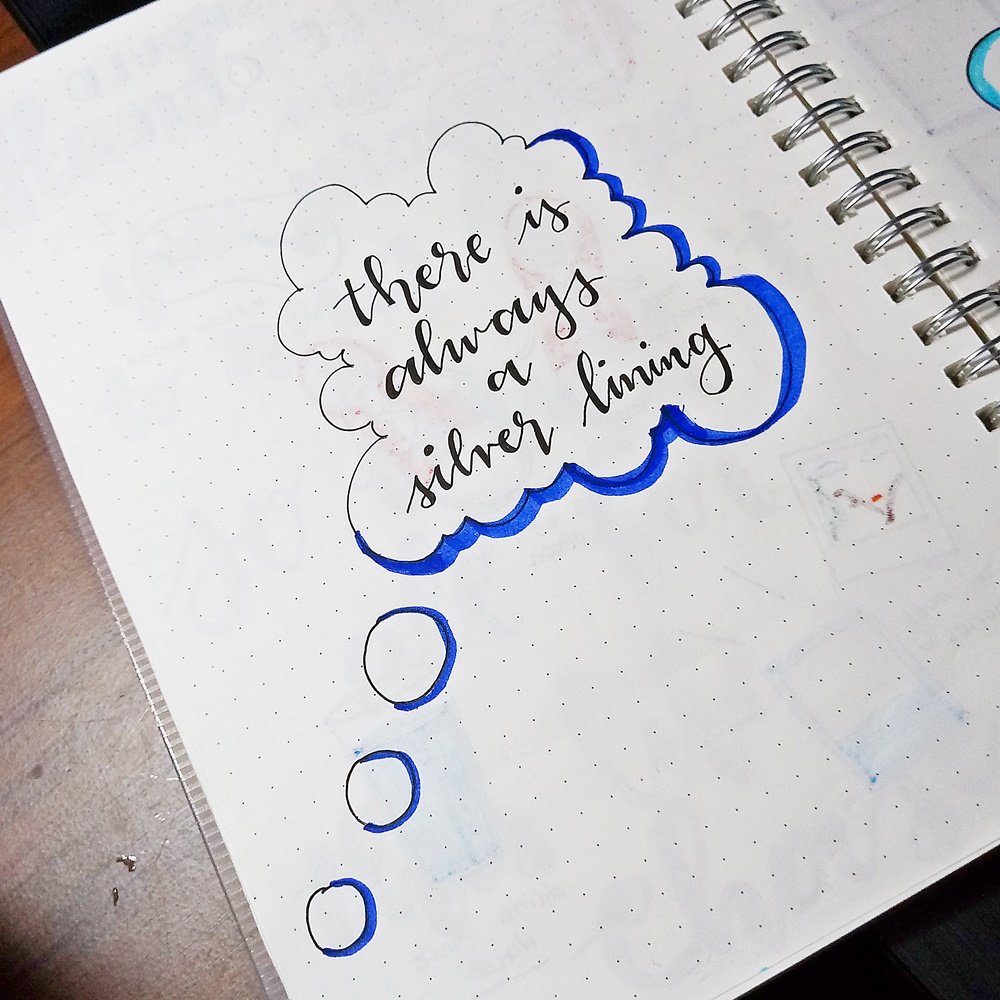 there is
always
a
silver lining